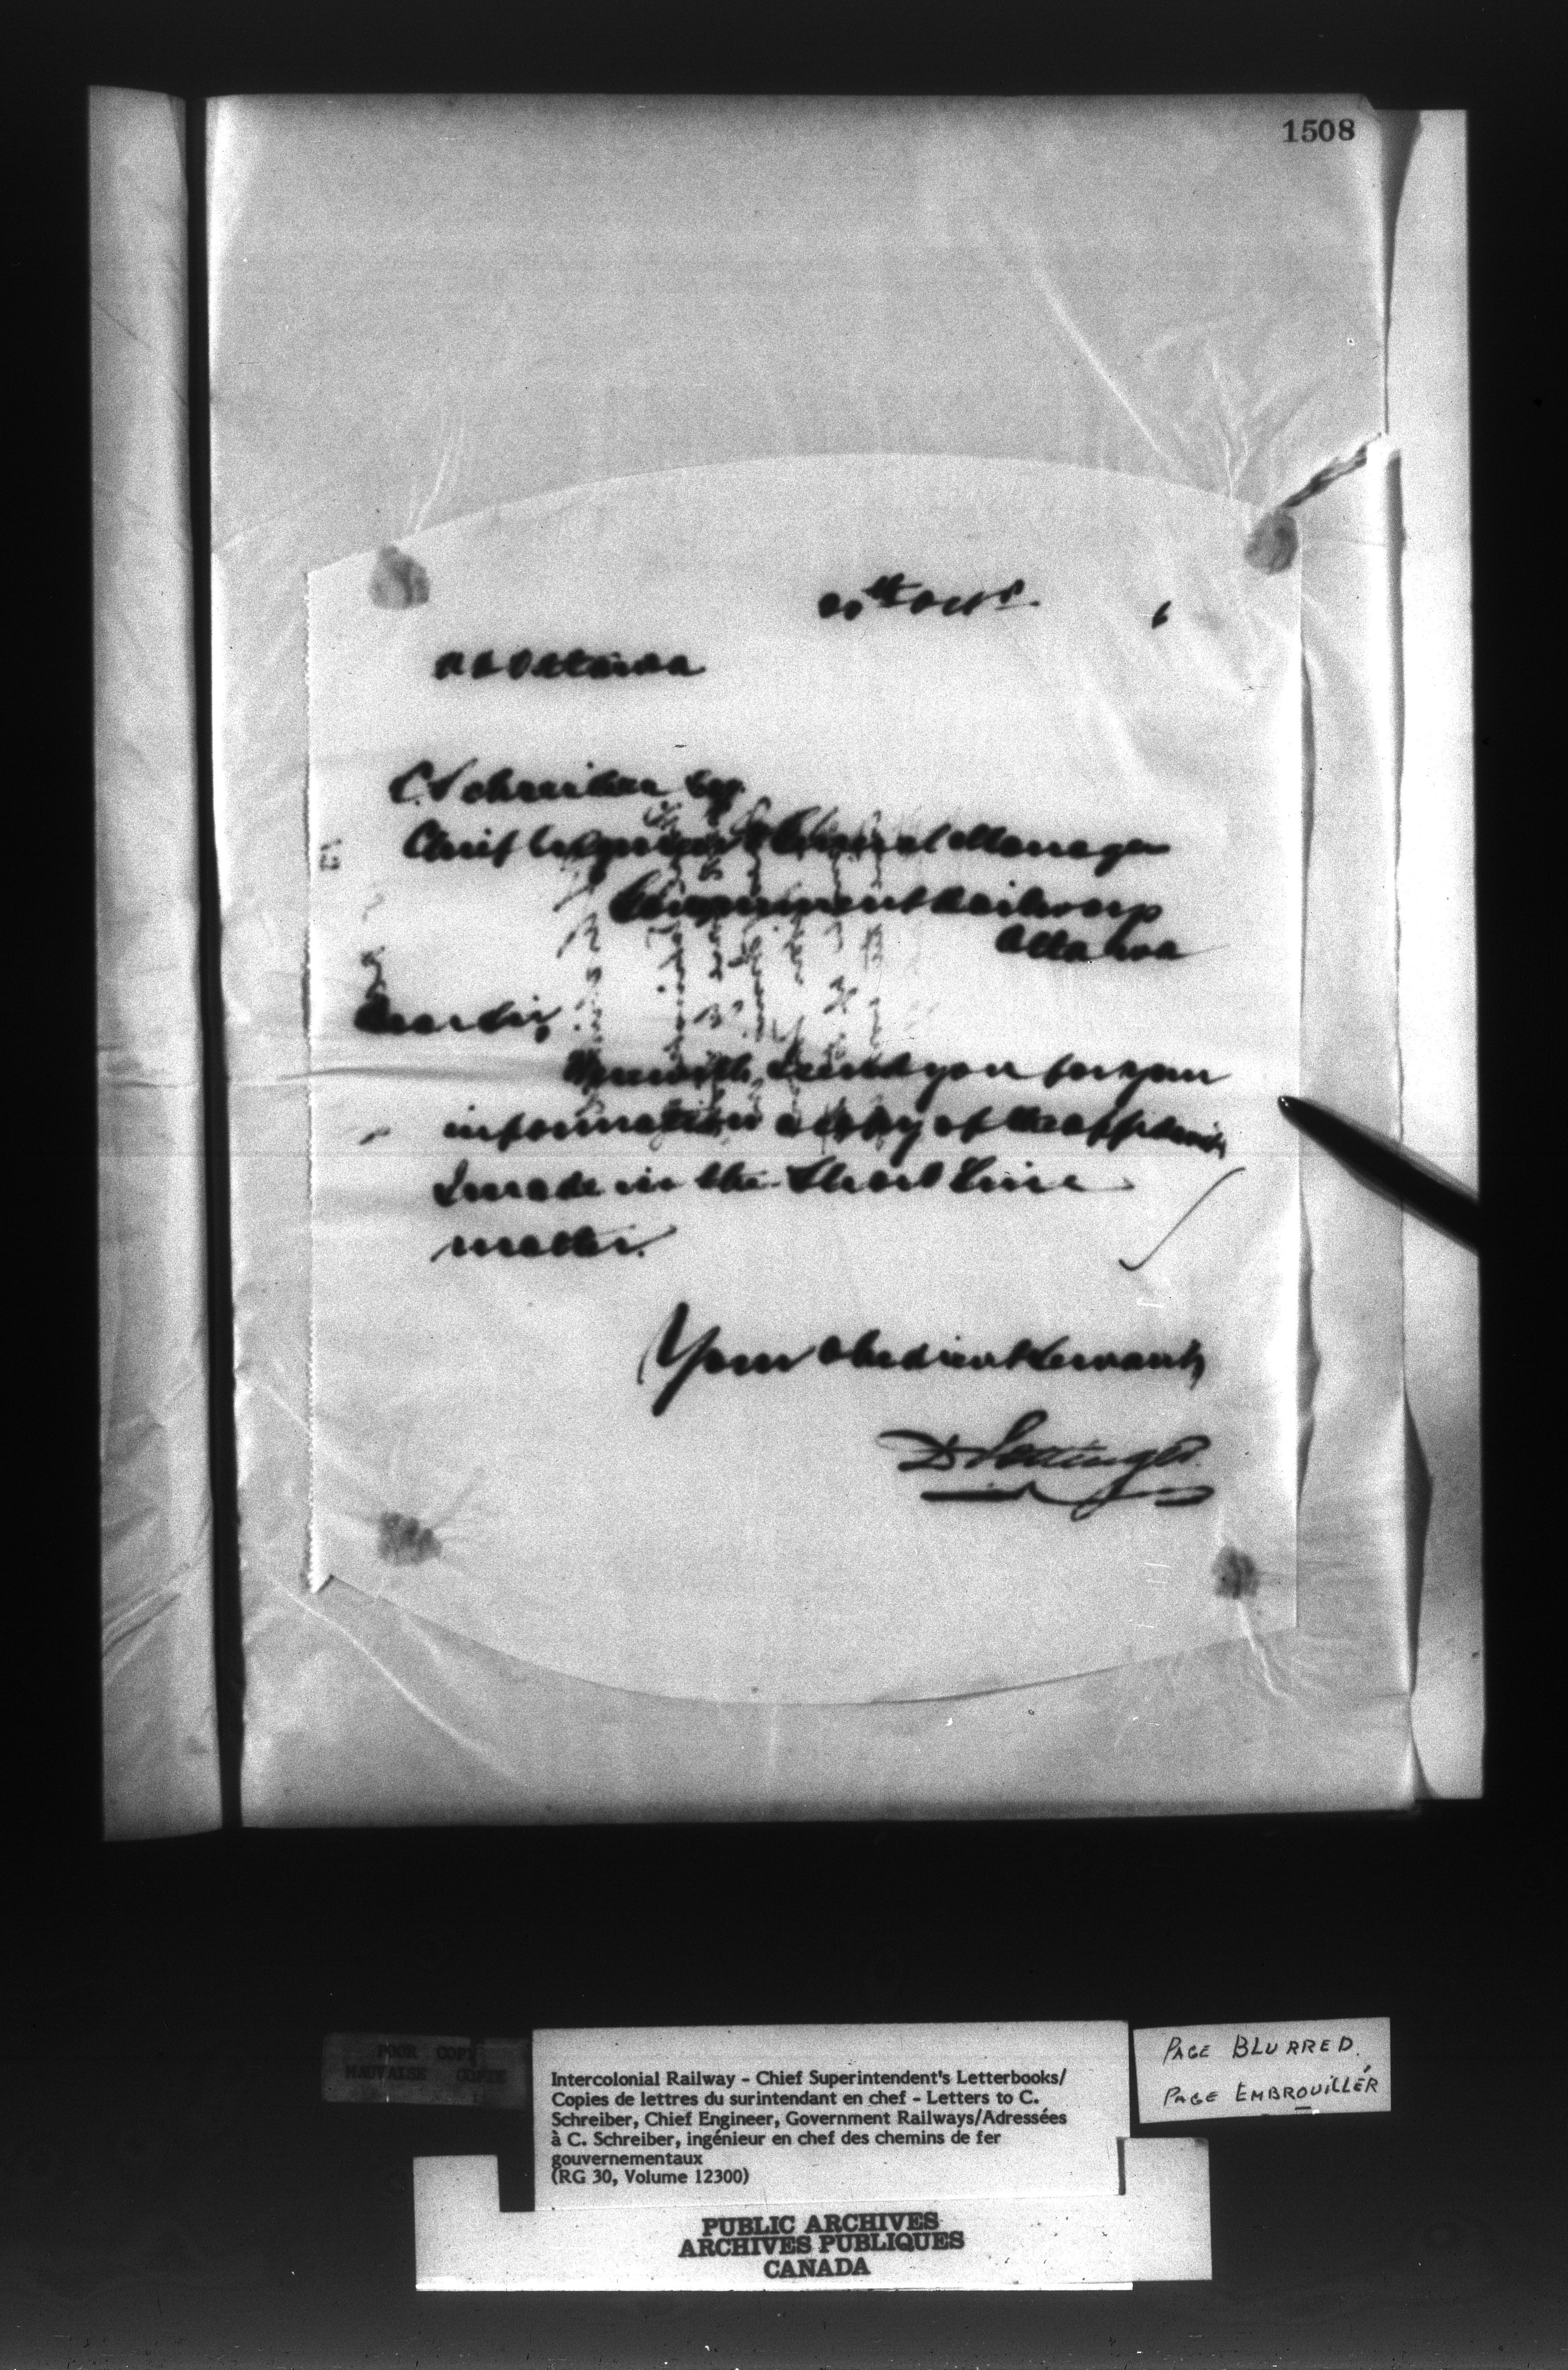 1508
Octr. 6
Ottawa
C. Schreiber Esq.
Chief Engineer & General Manager
Government Railways
Ottawa
Dear Sir,
Herewith I send you for your
information a copy of the affidavit
I made in the Short Line
matter.
Your obedient servant,
D Pottinger
POOR COPY
MAUVAISE COPIE
Intercolonial Railway - Chief Superintendent's Letterbooks/
Copies de lettres du surintendant en chef - Letters to C.
Schreiber, Chief Engineer, Government Railways/Adressées
à C. Schreiber, ingénieur en chef des chemins de fer
gouvernementaux
(RG 30, Volume 12300)
PAGE BLURRED.
PAGE EMBROUILLÉR
PUBLIC ARCHIVES
ARCHIVES PUBLIQUES
CANADA